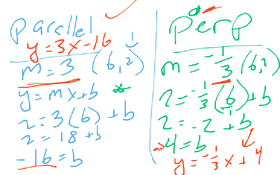 Parallel
y=3x-16
m=3 (6,2)
y=mx+b
2=3(6)+b
2=18+b
-16=b
Perp
m=-1/3 (6,2)
2=-1/3(6)+b
2=-2+b
4=b
y=-1/3x+4